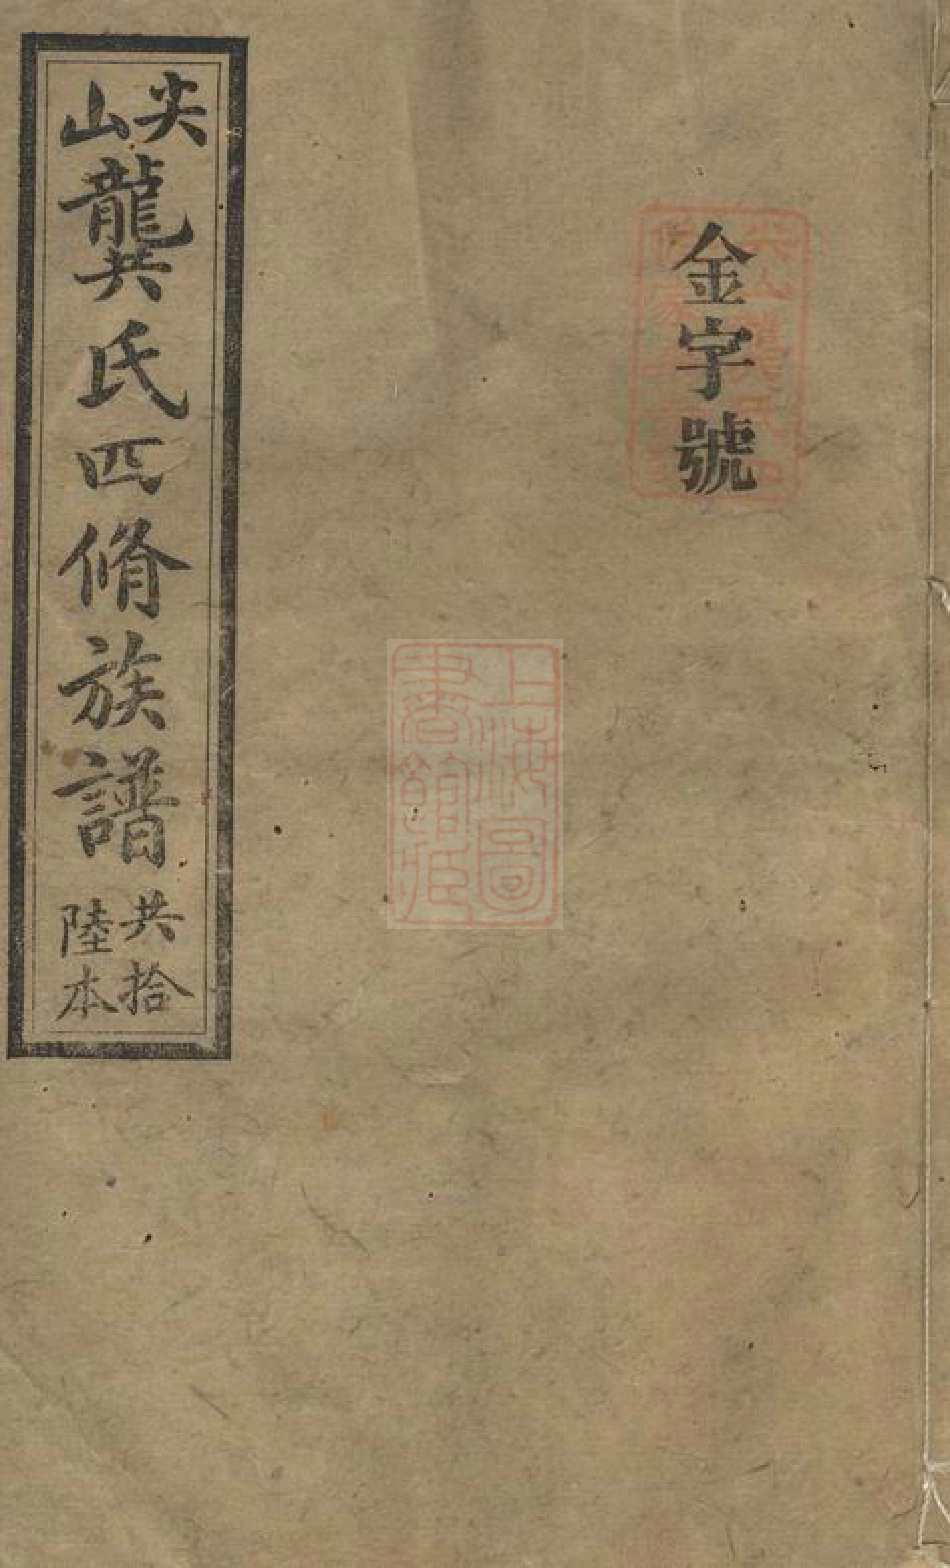 金字號
尖山龔氏四脩族譜
共拾
陸本
上海圖
書館藏